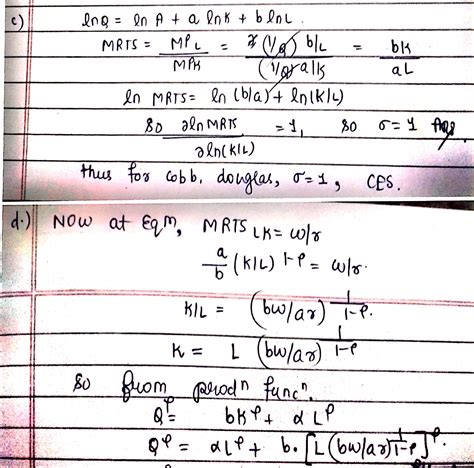 c) lnQ = ln A + a lnK + b lnL.
MRTS = MP_L / MP_K = (1/Q) b/L / (1/Q) a/K = bK / aL
ln MRTS = ln (b/a) + ln(K/L)
So ∂ln MRTS / ∂ln(K/L) = 1, So σ = 1 Ans.
thus for cobb. douglas, σ=1, CES.
d.) NOW at Eqm, MRTS LK = w/r
a/b (K/L)^1-ρ = w/r.
K/L = (bw/ar)^1/1-ρ.
K = L (bw/ar)^1/1-ρ
So from prodn funcn.
Q^ρ = bK^ρ + αL^ρ
Q^ρ = αL^ρ + b. [L (bw/ar)^1/1-ρ]^ρ